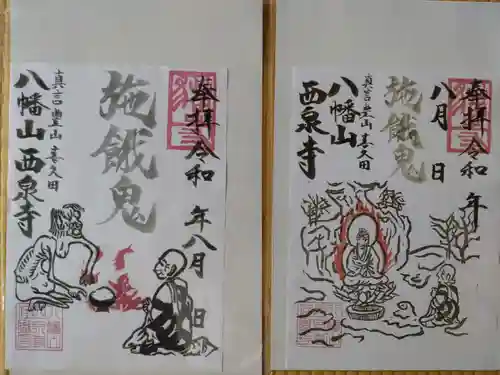 奉拝 令和 年 八月 日
施餓鬼
真言豊山 喜久田
八幡山 西泉寺
奉拝 令和 年
八月 日
施餓鬼
真言豊山 喜久田
八幡山
西泉寺